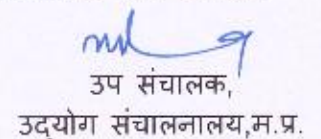 उप संचालक,
उद्योग संचालनालय,म.प्र.